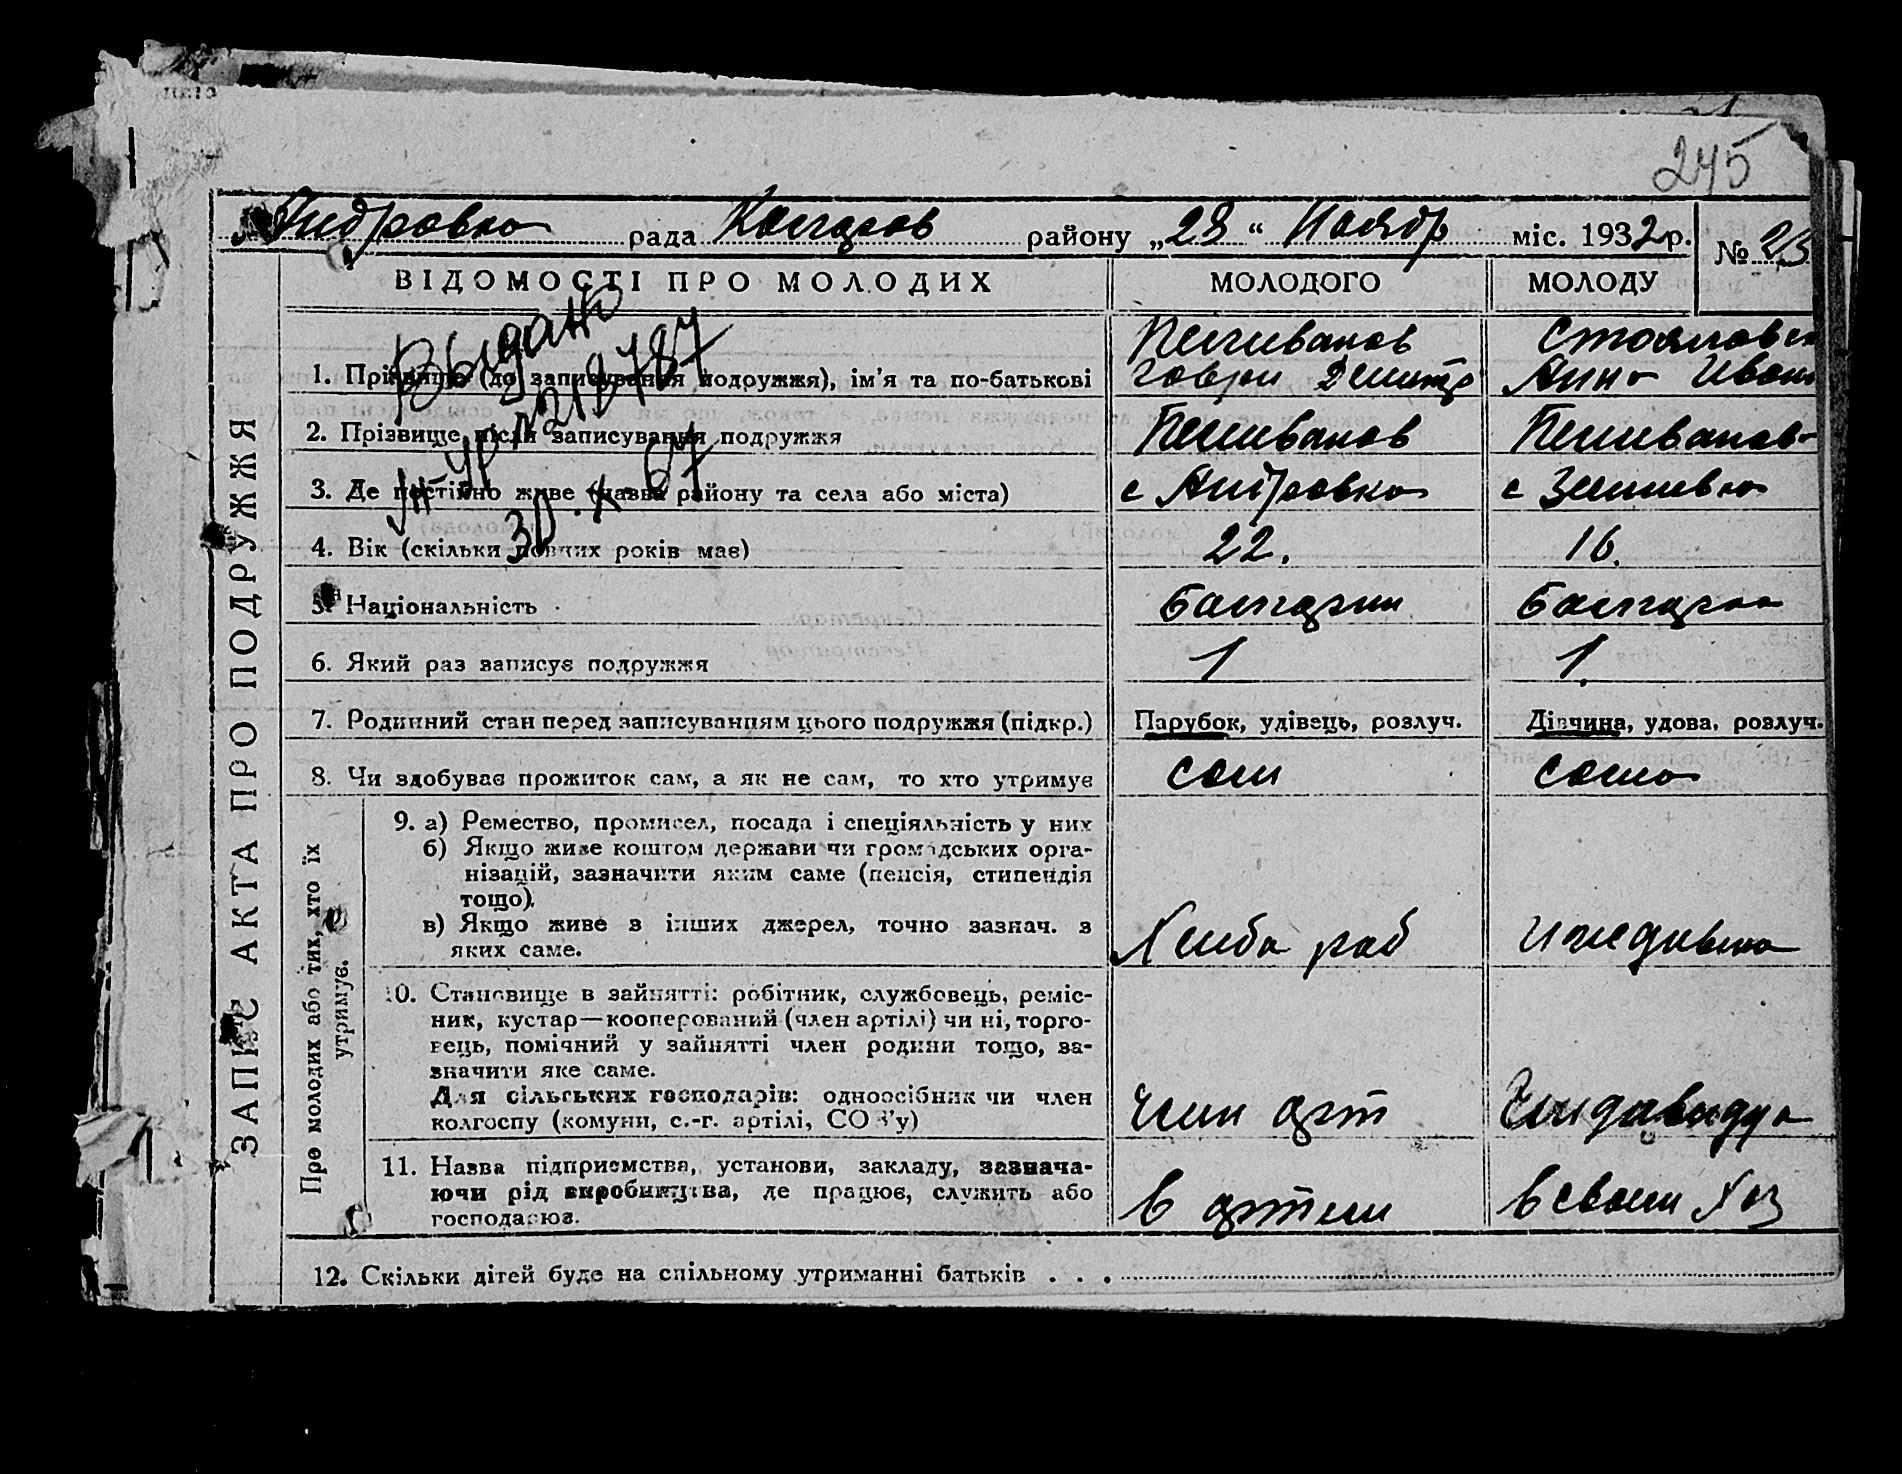 245
Андровка рада Коларов району „28“ Ноябр міс. 1932р. № 23
ВІДОМОСТІ ПРО МОЛОДИХ
МОЛОДОГО
МОЛОДУ
ЗАПИС АКТА ПРО ПОДРУЖЖЯ
Выдано
210787
30.X-67
1. Прізвище (до записування подружжя), ім’я та по-батькові
Пеливанов
Гаври Дмитр
Анна Иван
2. Прізвище після записування подружжя
Пеливанов
Пеливанов
3. Де постійно живе (назва району та села або міста)
с Андровка
с
4. Вік (скільки повних років має)
22.
16.
5. Національність
Болгарин
Болгарка
6. Який раз записує подружжя
1
1
7. Родинний стан перед записуванням цього подружжя (підкр.)
Парубок, удівець, розлуч.
Дівчина, удова, розлуч.
8. Чи здобуває прожиток сам, а як не сам, то хто утримує
сам
сама
Про молодих або тих, хто їх
утримує.
9. а) Ремество, промисел, посада і спеціяльність у них
б) Якщо живе коштом держави чи громадських орга-
нізацій, зазначити яким саме (пенсія, стипендія
тощо).
в) Якщо живе з інших джерел, точно зазнач. з
яких саме.
Хлеба роб
Иждивена
10. Становище в зайнятті: робітник, службовець, реміс-
ник, кустар—кооперований (член артілі) чи ні, торго-
вець, помічний у зайнятті член родини тощо, за-
значити яке саме.
Для сільських господарів: одноосібник чи член
колгоспу (комуни, с.-г. артілі, СОЗ’у)
член арт
11. Назва підприємства, установи, закладу, зазнача-
ючи рід виробництва, де працює, служить або
господарює.
в артели
в своем хоз
12. Скільки дітей буде на спільному утриманні батьків . . .